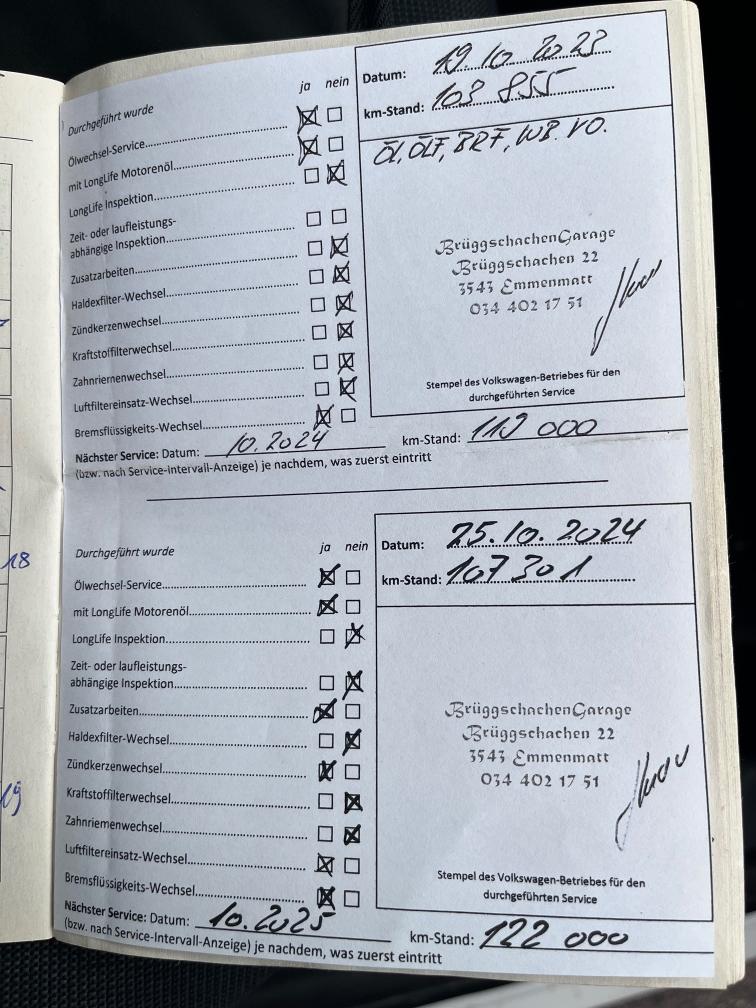 Datum: 19.10.2023
km-Stand: 103 855
ÖL, ÖLF, BRF, WB. VO.
BrüggschachenGarage
Brüggschachen 22
3543 Emmenmatt
034 402 17 51
Stempel des Volkswagen-Betriebes für den
durchgeführten Service
ja nein
Durchgeführt wurde
Ölwechsel-Service
mit LongLife Motorenöl
LongLife Inspektion
Zeit- oder laufleistungs-
abhängige Inspektion
Zusatzarbeiten
Haldexfilter-Wechsel
Zündkerzenwechsel
Kraftstoffilterwechsel
Zahnriemenwechsel
Luftfiltereinsatz-Wechsel
Bremsflüssigkeits-Wechsel
Nächster Service: Datum: 10.2024 km-Stand: 119 000
(bzw. nach Service-Intervall-Anzeige) je nachdem, was zuerst eintritt
18
Datum: 25.10.2024
km-Stand: 107 301
BrüggschachenGarage
Brüggschachen 22
3543 Emmenmatt
034 402 17 51
Stempel des Volkswagen-Betriebes für den
durchgeführten Service
ja nein
Durchgeführt wurde
Ölwechsel-Service
mit LongLife Motorenöl
LongLife Inspektion
Zeit- oder laufleistungs-
abhängige Inspektion
Zusatzarbeiten
Haldexfilter-Wechsel
Zündkerzenwechsel
Kraftstoffilterwechsel
Zahnriemenwechsel
Luftfiltereinsatz-Wechsel
Bremsflüssigkeits-Wechsel
Nächster Service: Datum: 10.2025 km-Stand: 122 000
(bzw. nach Service-Intervall-Anzeige) je nachdem, was zuerst eintritt